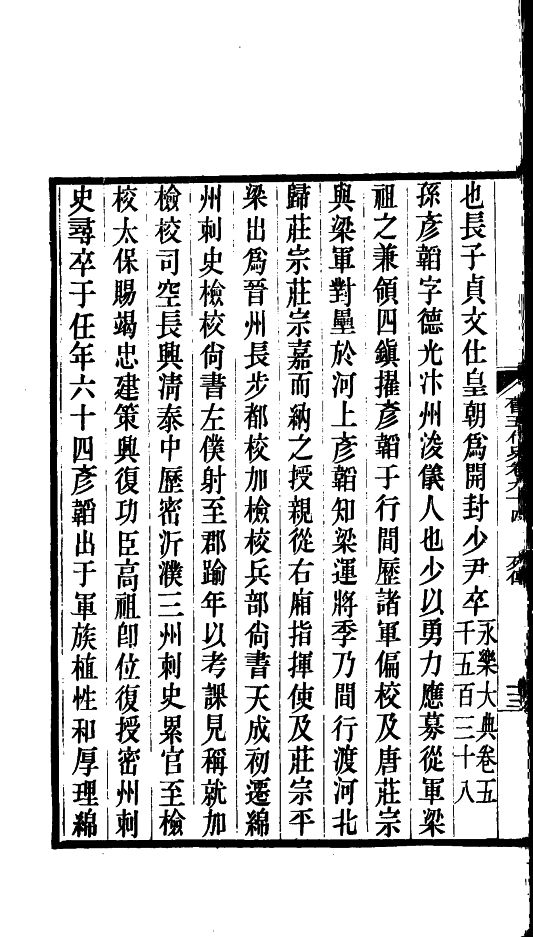 也長子貞文仕皇朝爲開封少尹卒永樂大典卷五
千五百三十八
孫彥韜字德光汴州浚儀人也少以勇力應募從軍梁
祖之兼領四鎭擢彥韜于行間歷諸軍偏校及唐莊宗
與梁軍對壘於河上彥韜知梁運將季乃間行渡河北
歸莊宗莊宗嘉而納之授親從右廂指揮使及莊宗平
梁出爲晉州長步都校加檢校兵部尙書天成初遷綿
州刺史檢校尙書左僕射至郡踰年以考課見稱就加
檢校司空長興淸泰中歷密沂濮三州刺史累官至檢
校太保賜竭忠建策興復功臣高祖卽位復授密州刺
史尋卒于任年六十四彥韜出于軍族植性和厚理綿
舊五代史卷九十四
列傳